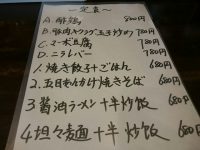 定食
A. 酢鶏 800円
B. 豚肉キクラゲ玉子炒め 780円
C. マーボ豆腐 780円
D. ニラレバー 780円
1. 焼き餃子+ごはん 680円
2. 五目あんかけ焼きそば 680円
3 醤油ラーメン+半炒飯 680円
4 担々麺+半炒飯 680円